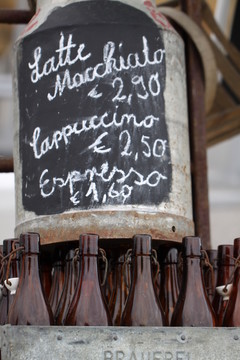 Latte
Macchiato
€ 2,90
Cappuccino
€ 2,50
Espresso
€ 1,60
BRAUEREI